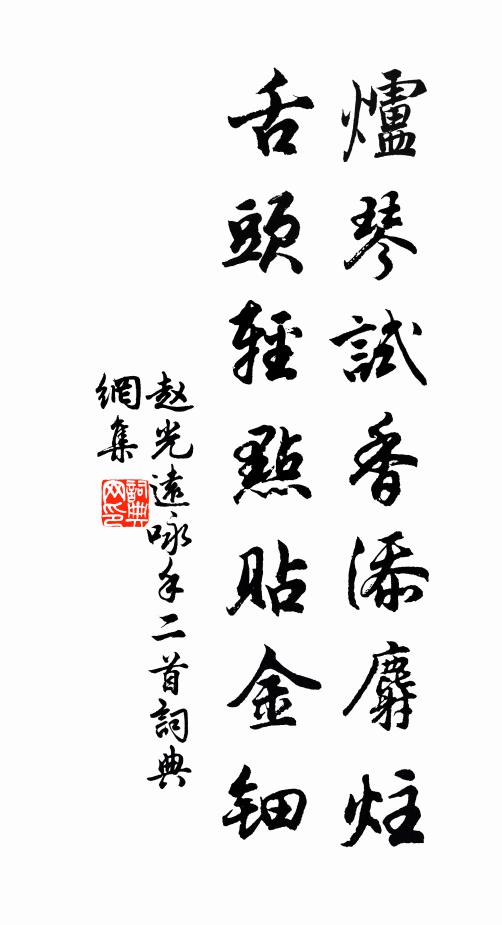 爐琴試香添麝炷
舌頭輕點貼金鈿
赵光遠咏手二首詞典
網集
詞典網印